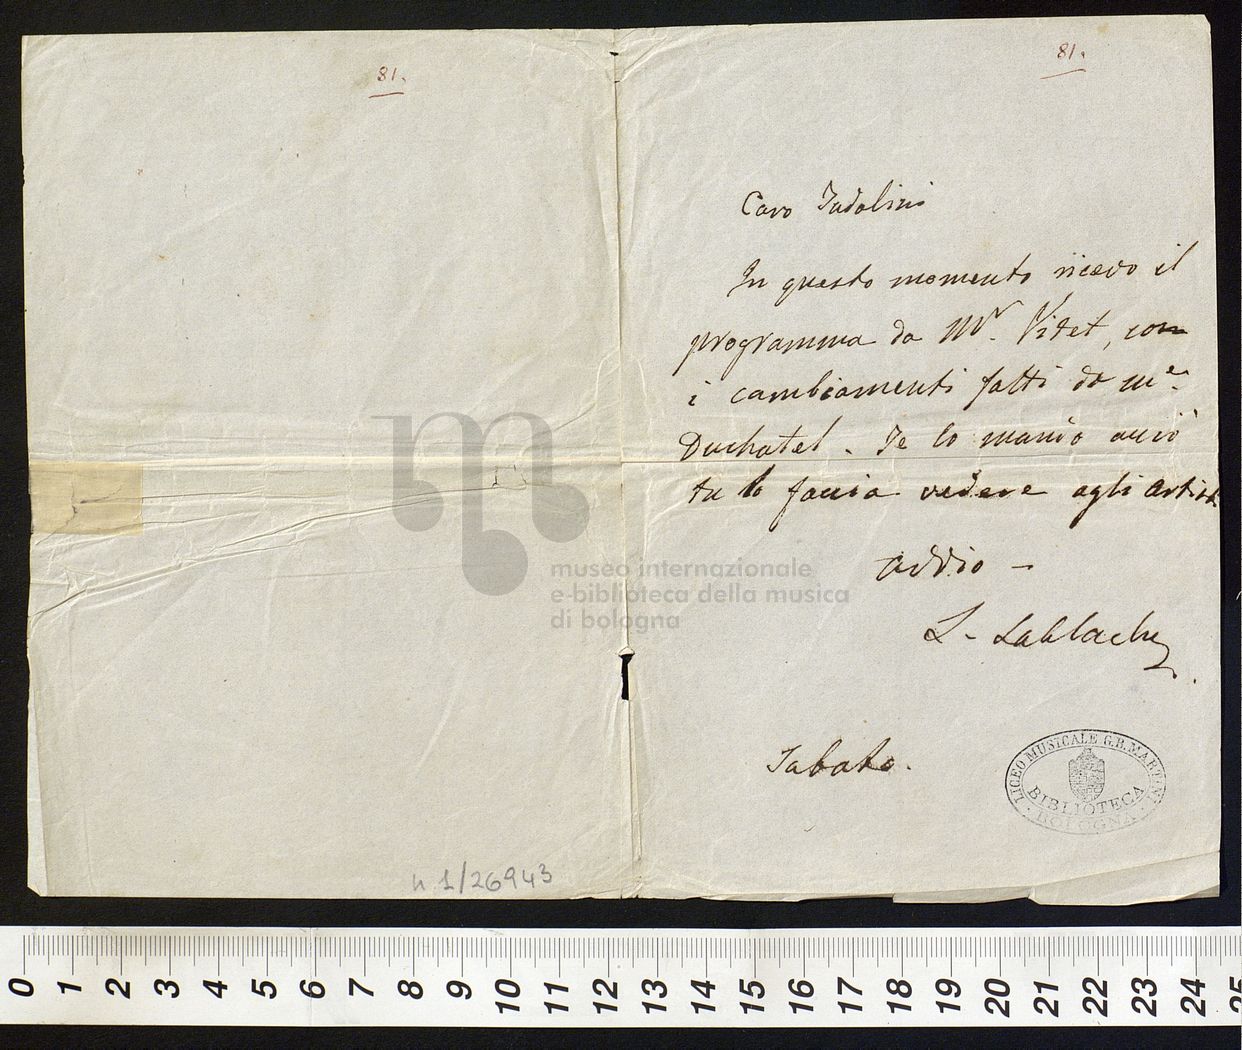 81.
81.
Caro Tadolini
In questo momento ricevo il
programma da Mr. Vitet, con
i cambiamenti fatti da me.
Duchatel. Te lo mando acciò
tu lo faccia vedere agli artisti
addio –
L. Lablache
Sabato.
LICEO MUSICALE G.B. MARTINI
BIBLIOTECA
BOLOGNA
museo internazionale
e biblioteca della musica
di bologna
n 1/26943
0 1 2 3 4 5 6 7 8 9 10 11 12 13 14 15 16 17 18 19 20 21 22 23 24 25